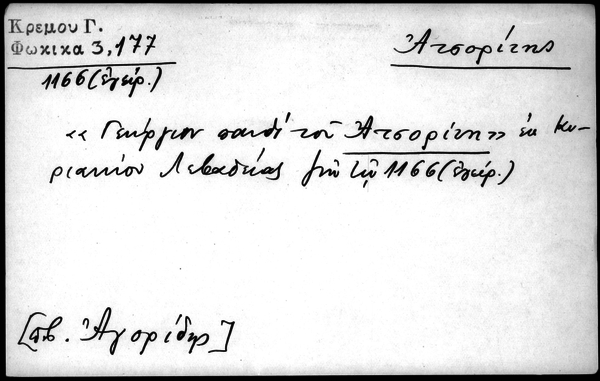 Κρεμου Γ.
Φωκικα 3,177
1166 (ἐγείρ.)
Ἀτσορίτης
«Γεώργιον παιδὶ τοῦ Ἀτσορίτη» ἐκ Κυ-
ριακίου Λεβαδείας τῷ 1166 (ἐγείρ.)
[πβ. Ἀγορίδης]